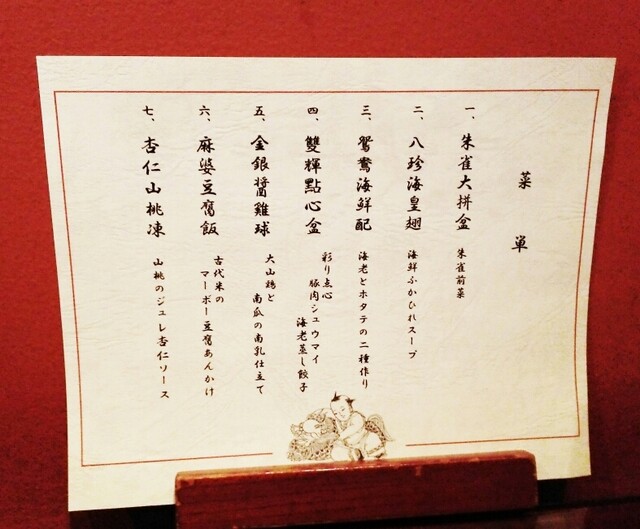 菜単
一、朱雀大拼盆
朱雀前菜
二、八珍海皇翅
海鮮ふかひれスープ
三、鴛鴦海鮮配
海老とホタテの二種作り
四、雙輝點心盆
彩り点心
豚肉シュウマイ
海老蒸し餃子
五、金銀醤雞球
大山鶏と
南瓜の南乳仕立て
六、麻婆豆腐飯
古代米の
マーボー豆腐あんかけ
七、杏仁山桃凍
山桃のジュレ杏仁ソース